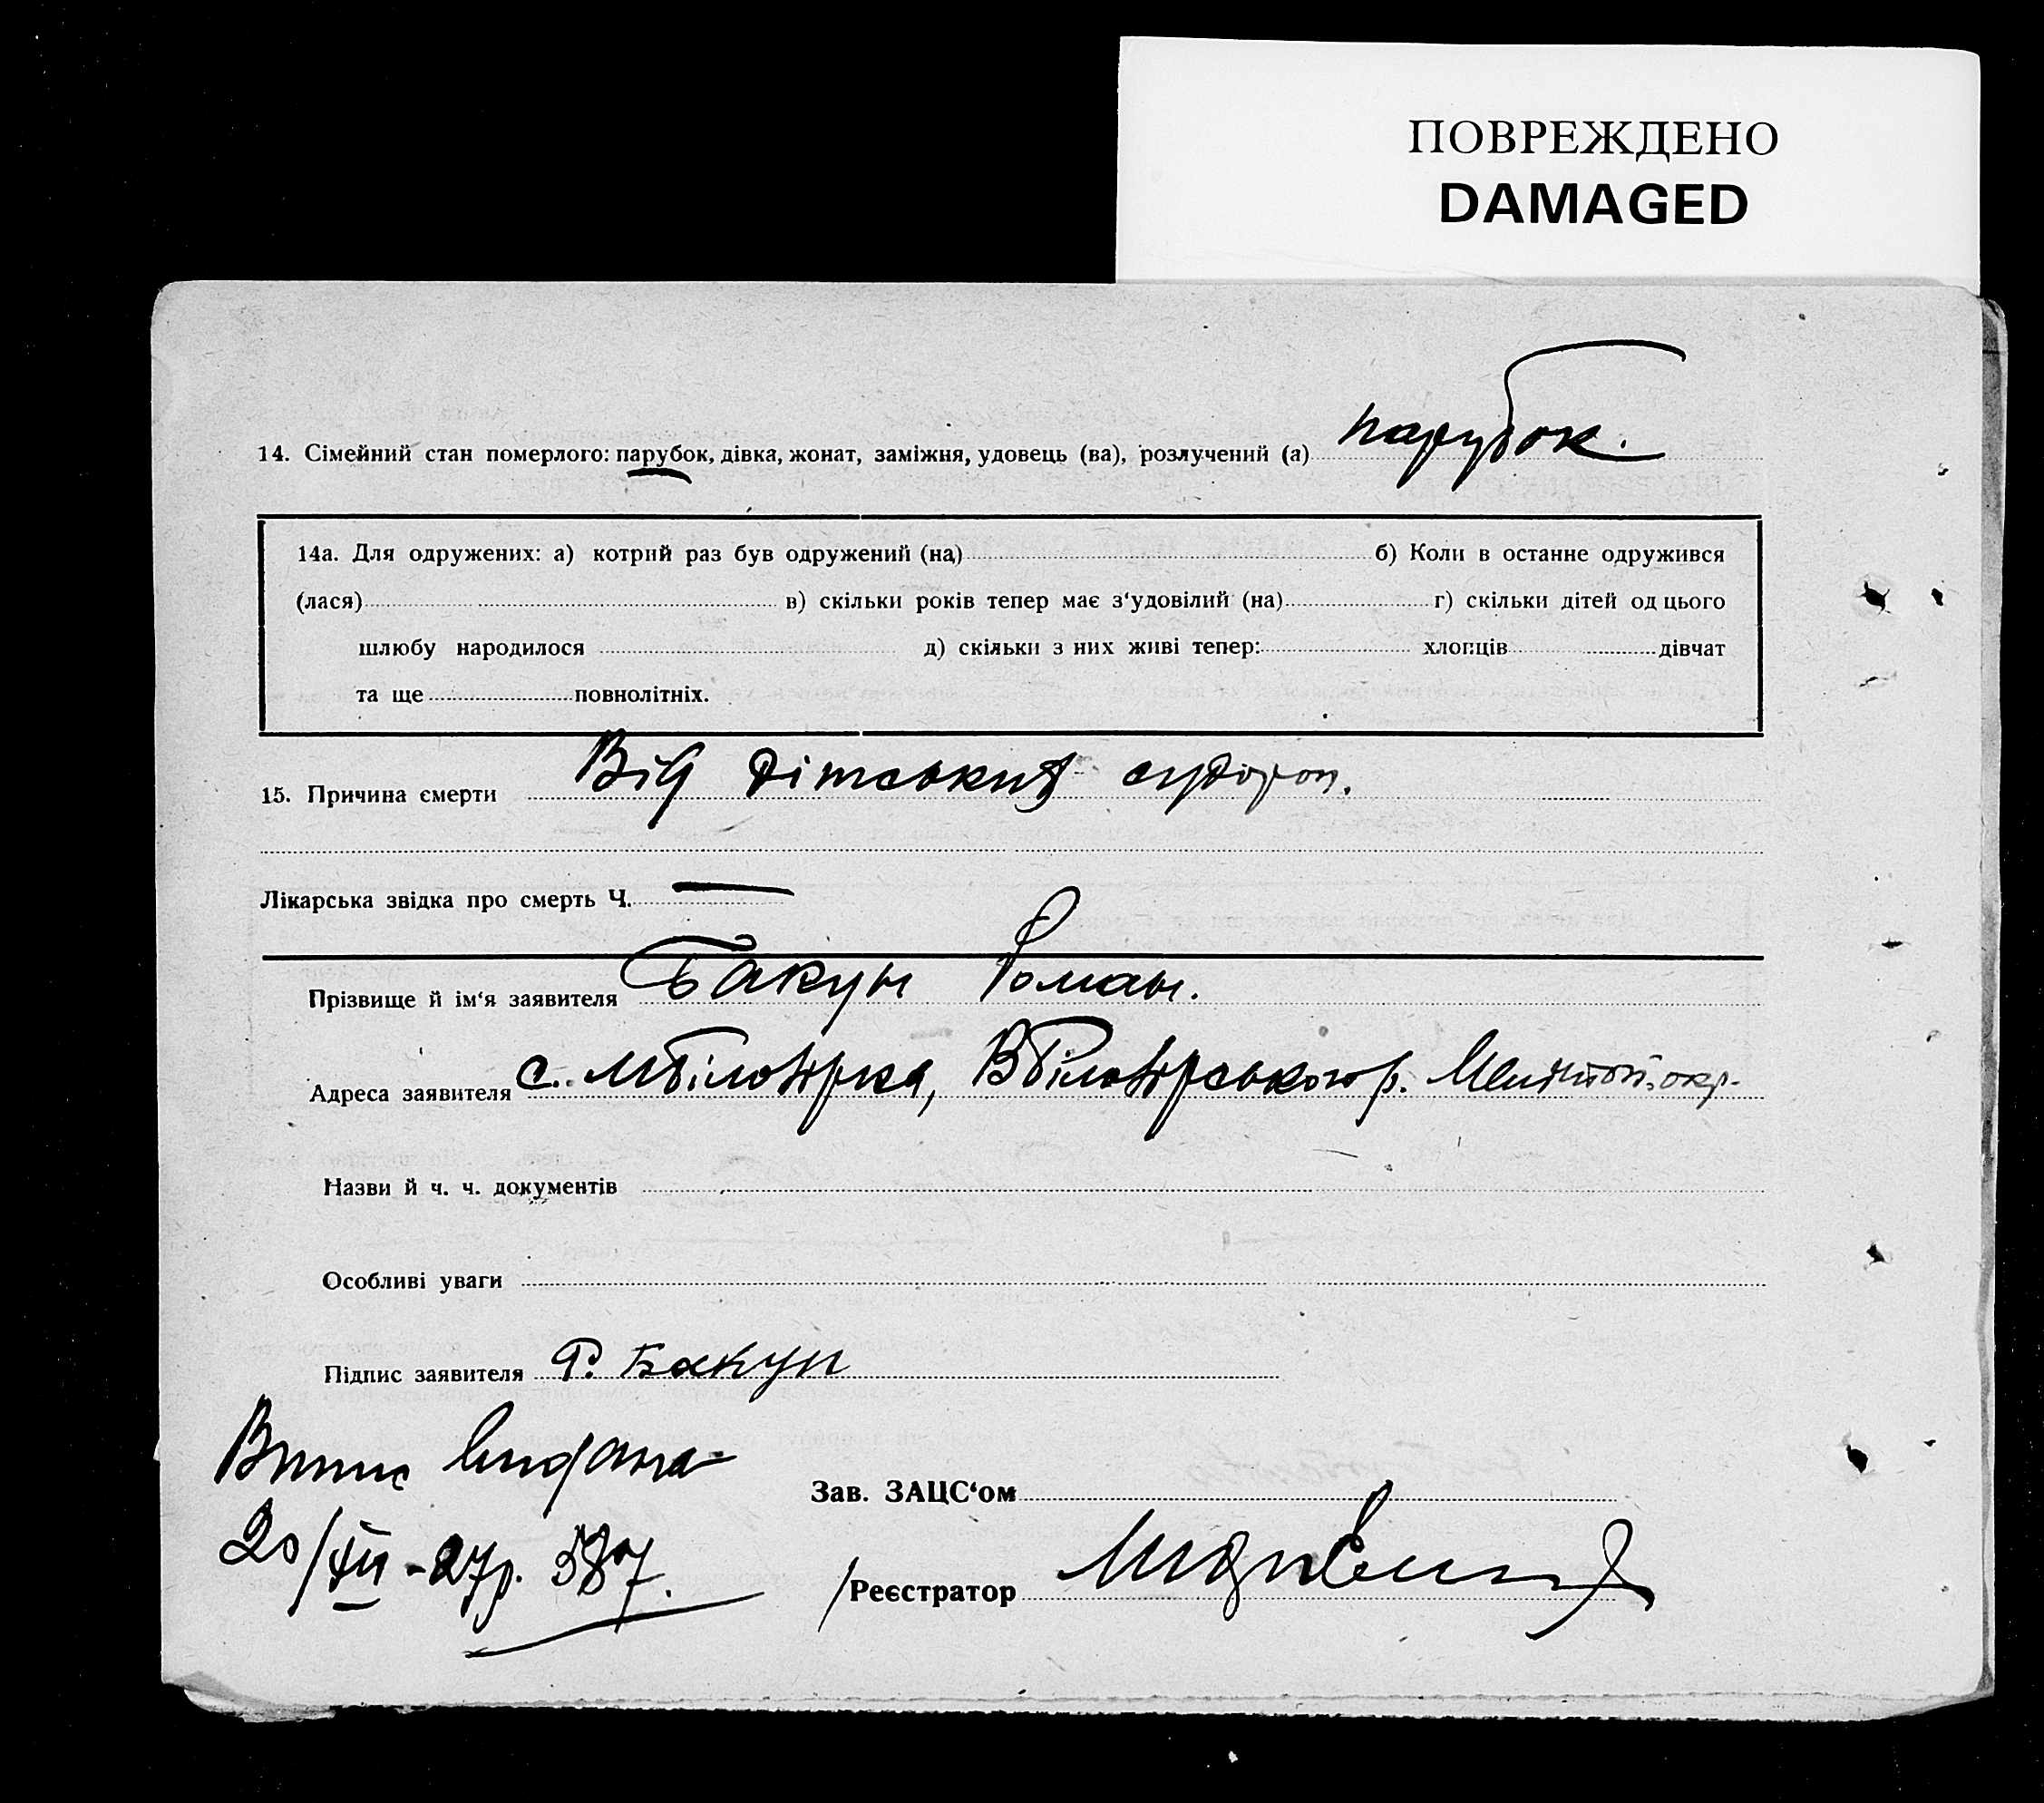 ПОВРЕЖДЕНО
DAMAGED
14. Сімейний стан померлого: парубок, дівка, жонат, заміжня, удовець (ва), розлучений (а) парубок.
14а. Для одружених: а) котрий раз був одружений (на) б) Коли в останне одружився
(лася) в) скільки років тепер має з‘удовілий (на) г) скільки дітей од цього
шлюбу народилося д) скільки з них живі тепер: хлопців дівчат
та ще повнолітніх.
15. Причина смерти Від дітських судорог.
Лікарська звідка про смерть Ч. —
Прізвище й ім‘я заявителя Бакун Роман.
Адреса заявителя с. МБілозірка, ВБілозірського р. Меліт. окр.
Назви й ч. ч. документів
Особливі уваги
Підпис заявителя Р. Бакун
Випис видана
Зав. ЗАЦС‘ом
20/XII-27р. 587.
/Реєстратор